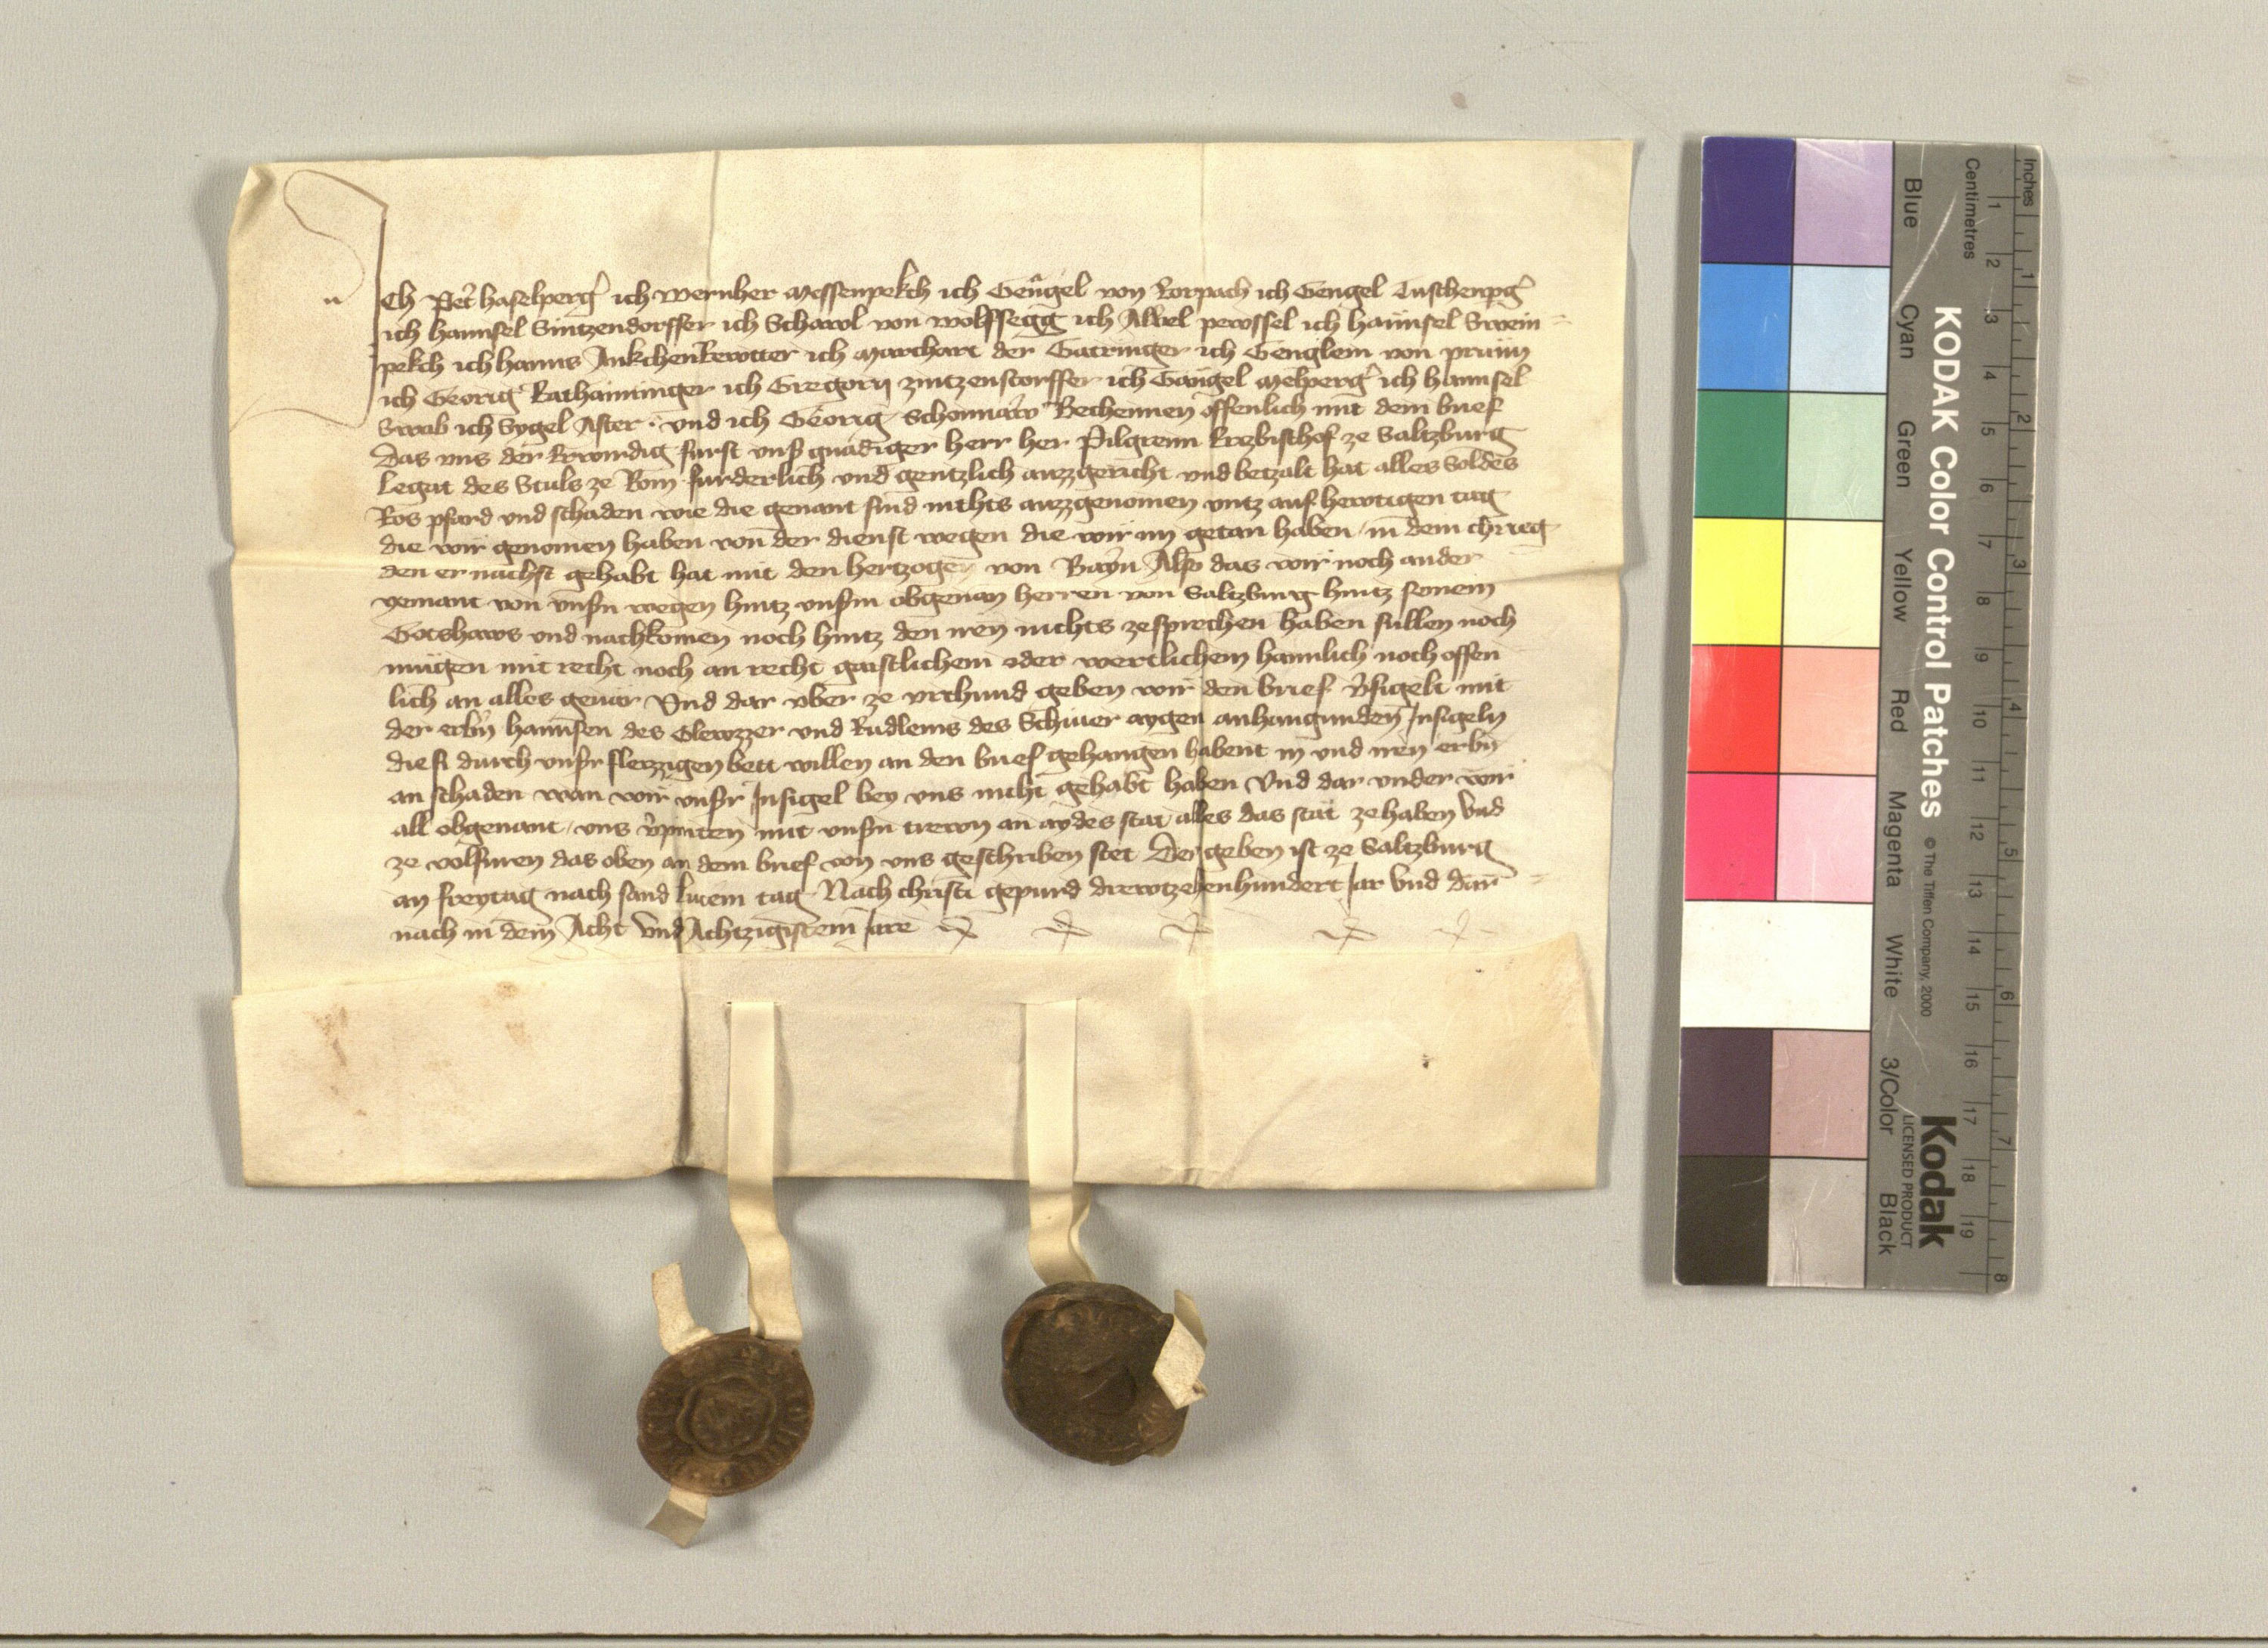 Ich Peter haselperger ich wernher Messenpekch ich Gengel von Rorpach ich Gengel Tuschenperger
ich hannsel Sintzendorffer ich Scharol von wolffsegg ich Albel perossel ich hannsel Swein=
pekch ich hanns Ankchenrewtter ich Marchart der Gatringer ich Genglein von pruun
ich Georig Rathaiminger ich Gregorij zintzenstorffer ich Gengel Melperger ich hannsel
Swab ich Sygel Aster · und ich Georig Schonnaw Bechennen offenlich mit dem brief
Das uns der Erwirdig furst unser gnadiger herr her Pilgreim Erzbischof ze Saltzburg
Legat des Stuls ze Rom furderlich und gentzlich auzzgericht und betzalt hat alles Soldes
Ros pfard und schaden wie die genant sind nichts auzzgenomen untz auf hewtigen tag
die wir genomen haben von der dienst wegen die wir im getan haben in dem chrieg
den er nachst gehabt hat mit den hertzogen von Bayrn Also das wir noch ander
yemant von unsern wegen hintz unserm obgenan herren von Saltzburg hintz seinem
Gotshaws und nachkomen noch hintz den iren nichts zesprechen haben sullen noch
mugen mit recht noch an recht gaistlichem oder wertlichem haimlich noch offen
lich an alles gevar Und dar uber ze urchund geben wir den brief versigelt mit
der erbern hannsen des Glewzzer und Rudleins des Schiver aygen anhangunden Insigeln
die si durch unser flezzigen bett willen an den brief gehangen habent in und iren erben
an schaden wan wir unser Insigel bey uns nicht gehabt haben Und dar under wir
all obgenant uns verpinten mit unsern trewn an aydes stat alles das stat ze haben Und
ze volfuren das oben an dem brief von uns geschriben stet Der geben ist ze Saltzburg
an freytag nach sand Lucein tag Nach christi gepurd drewtzehenhundert Jar Und dar =
nach in dem Acht Und Achtzigistem Jare
KODAK Color Control Patches © The Tiffen Company, 2000
Kodak
LICENSED PRODUCT
Blue Cyan Green Yellow Red Magenta White 3/Color Black
Inches 1 2 3 4 5 6 7 8
Centimetres 1 2 3 4 5 6 7 8 9 10 11 12 13 14 15 16 17 18 19